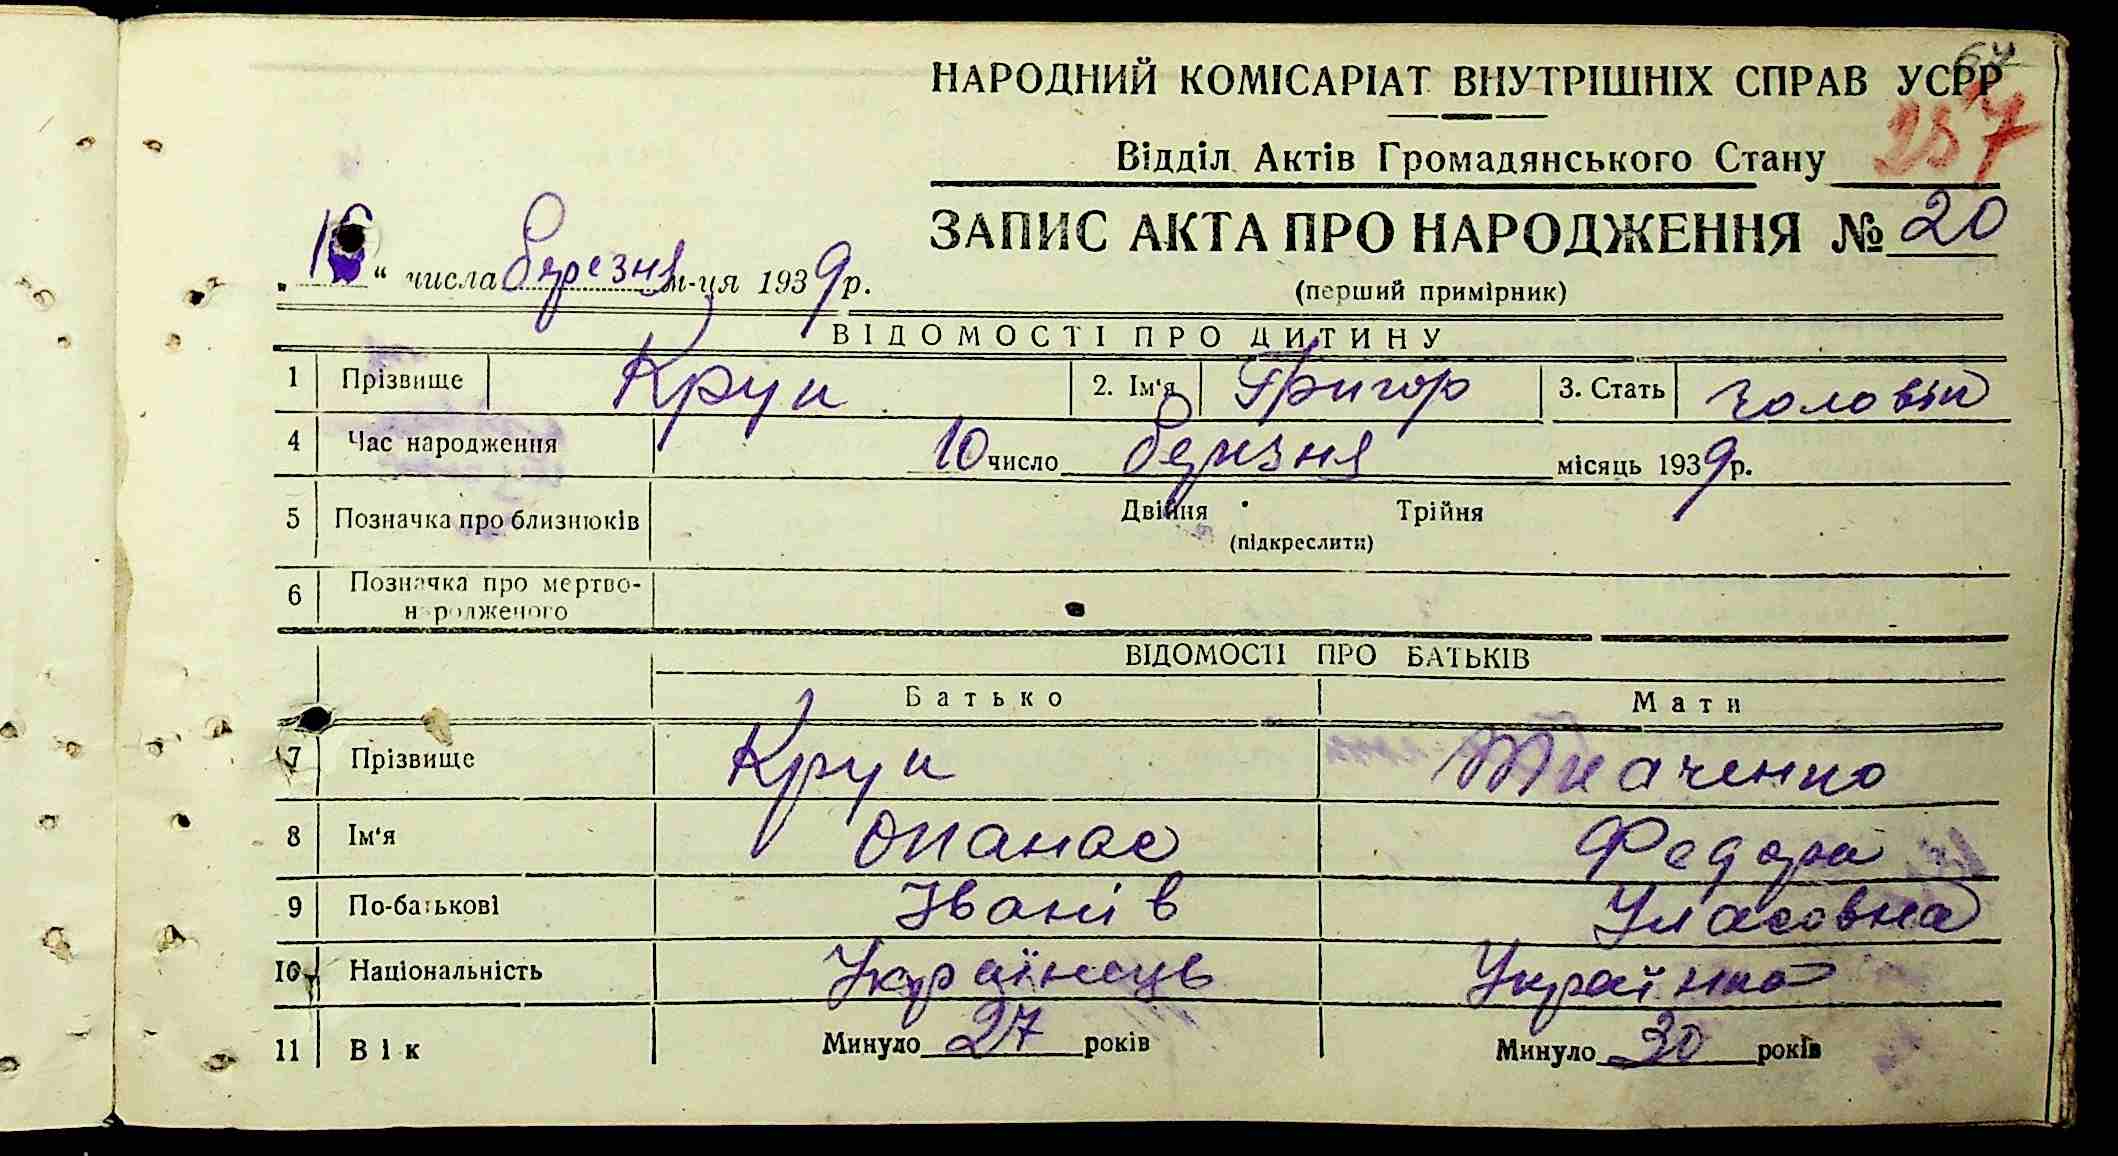 64
НАРОДНИЙ КОМІСАРІАТ ВНУТРІШНІХ СПРАВ УСРР
257
Відділ Актів Громадянського Стану
ЗАПИС АКТА ПРО НАРОДЖЕННЯ № 20
(перший примірник)
„16“ числа березня м-ця 1939 р.
ВІДОМОСТІ ПРО ДИТИНУ
1 Прізвище Крук 2. Ім'я Григор 3. Стать чоловік
4 Час народження 10 число березня місяць 1939 р.
5 Позначка про близнюків Двійня Трійня
(підкреслити)
6 Позначка про мертво-
народженого
ВІДОМОСТІ ПРО БАТЬКІВ
Батько Мати
7 Прізвище Крук Ткаченко
8 Ім'я Опанас Федора
9 По-батькові Іванів Уласовна
10 Національність Українець Українка
11 Вік Минуло 27 років Минуло 30 років